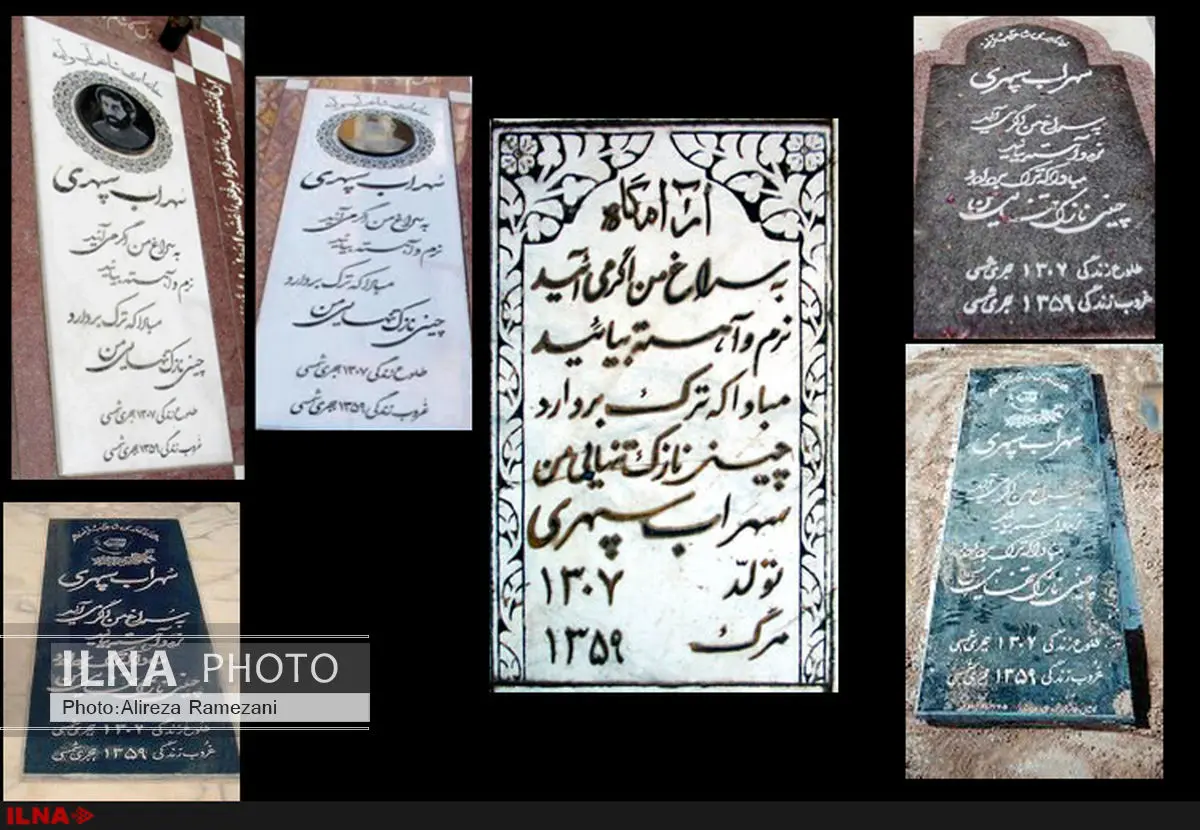 سهراب سپهری
به سراغ من اگر می آئید
نرم و آهسته بیائید
مبادا که ترک بردارد
چینی نازک تنهایی من
طلوع زندگی ۱۳۰۷ هجری شمسی
غروب زندگی ۱۳۵۹ هجری شمسی
سهراب سپهری
به سراغ من اگر می آئید
نرم و آهسته بیائید
مبادا که ترک بردارد
چینی نازک تنهایی من
طلوع زندگی ۱۳۰۷ هجری شمسی
غروب زندگی ۱۳۵۹ هجری شمسی
آرامگاه
به سراغ من اگر می آئید
نرم و آهسته بیائید
مبادا که ترک بردارد
چینی نازک تنهایی من
سهراب سپهری
تولد ۱۳۰۷
مرگ ۱۳۵۹
سهراب سپهری
به سراغ من اگر می آئید
نرم و آهسته بیائید
مبادا که ترک بردارد
چینی نازک تنهایی من
طلوع زندگی ۱۳۰۷ هجری شمسی
غروب زندگی ۱۳۵۹ هجری شمسی
سهراب سپهری
به سراغ من اگر می آئید
نرم و آهسته بیائید
مبادا که ترک بردارد
چینی نازک تنهایی من
طلوع زندگی ۱۳۰۷ هجری شمسی
غروب زندگی ۱۳۵۹ هجری شمسی
سهراب سپهری
به سراغ من اگر می آئید
نرم و آهسته بیائید
چینی نازک
طلوع زندگی ۱۳۰۷ هجری شمسی
غروب زندگی ۱۳۵۹ هجری شمسی
ILNA PHOTO
Photo:Alireza Ramezani
ILNA